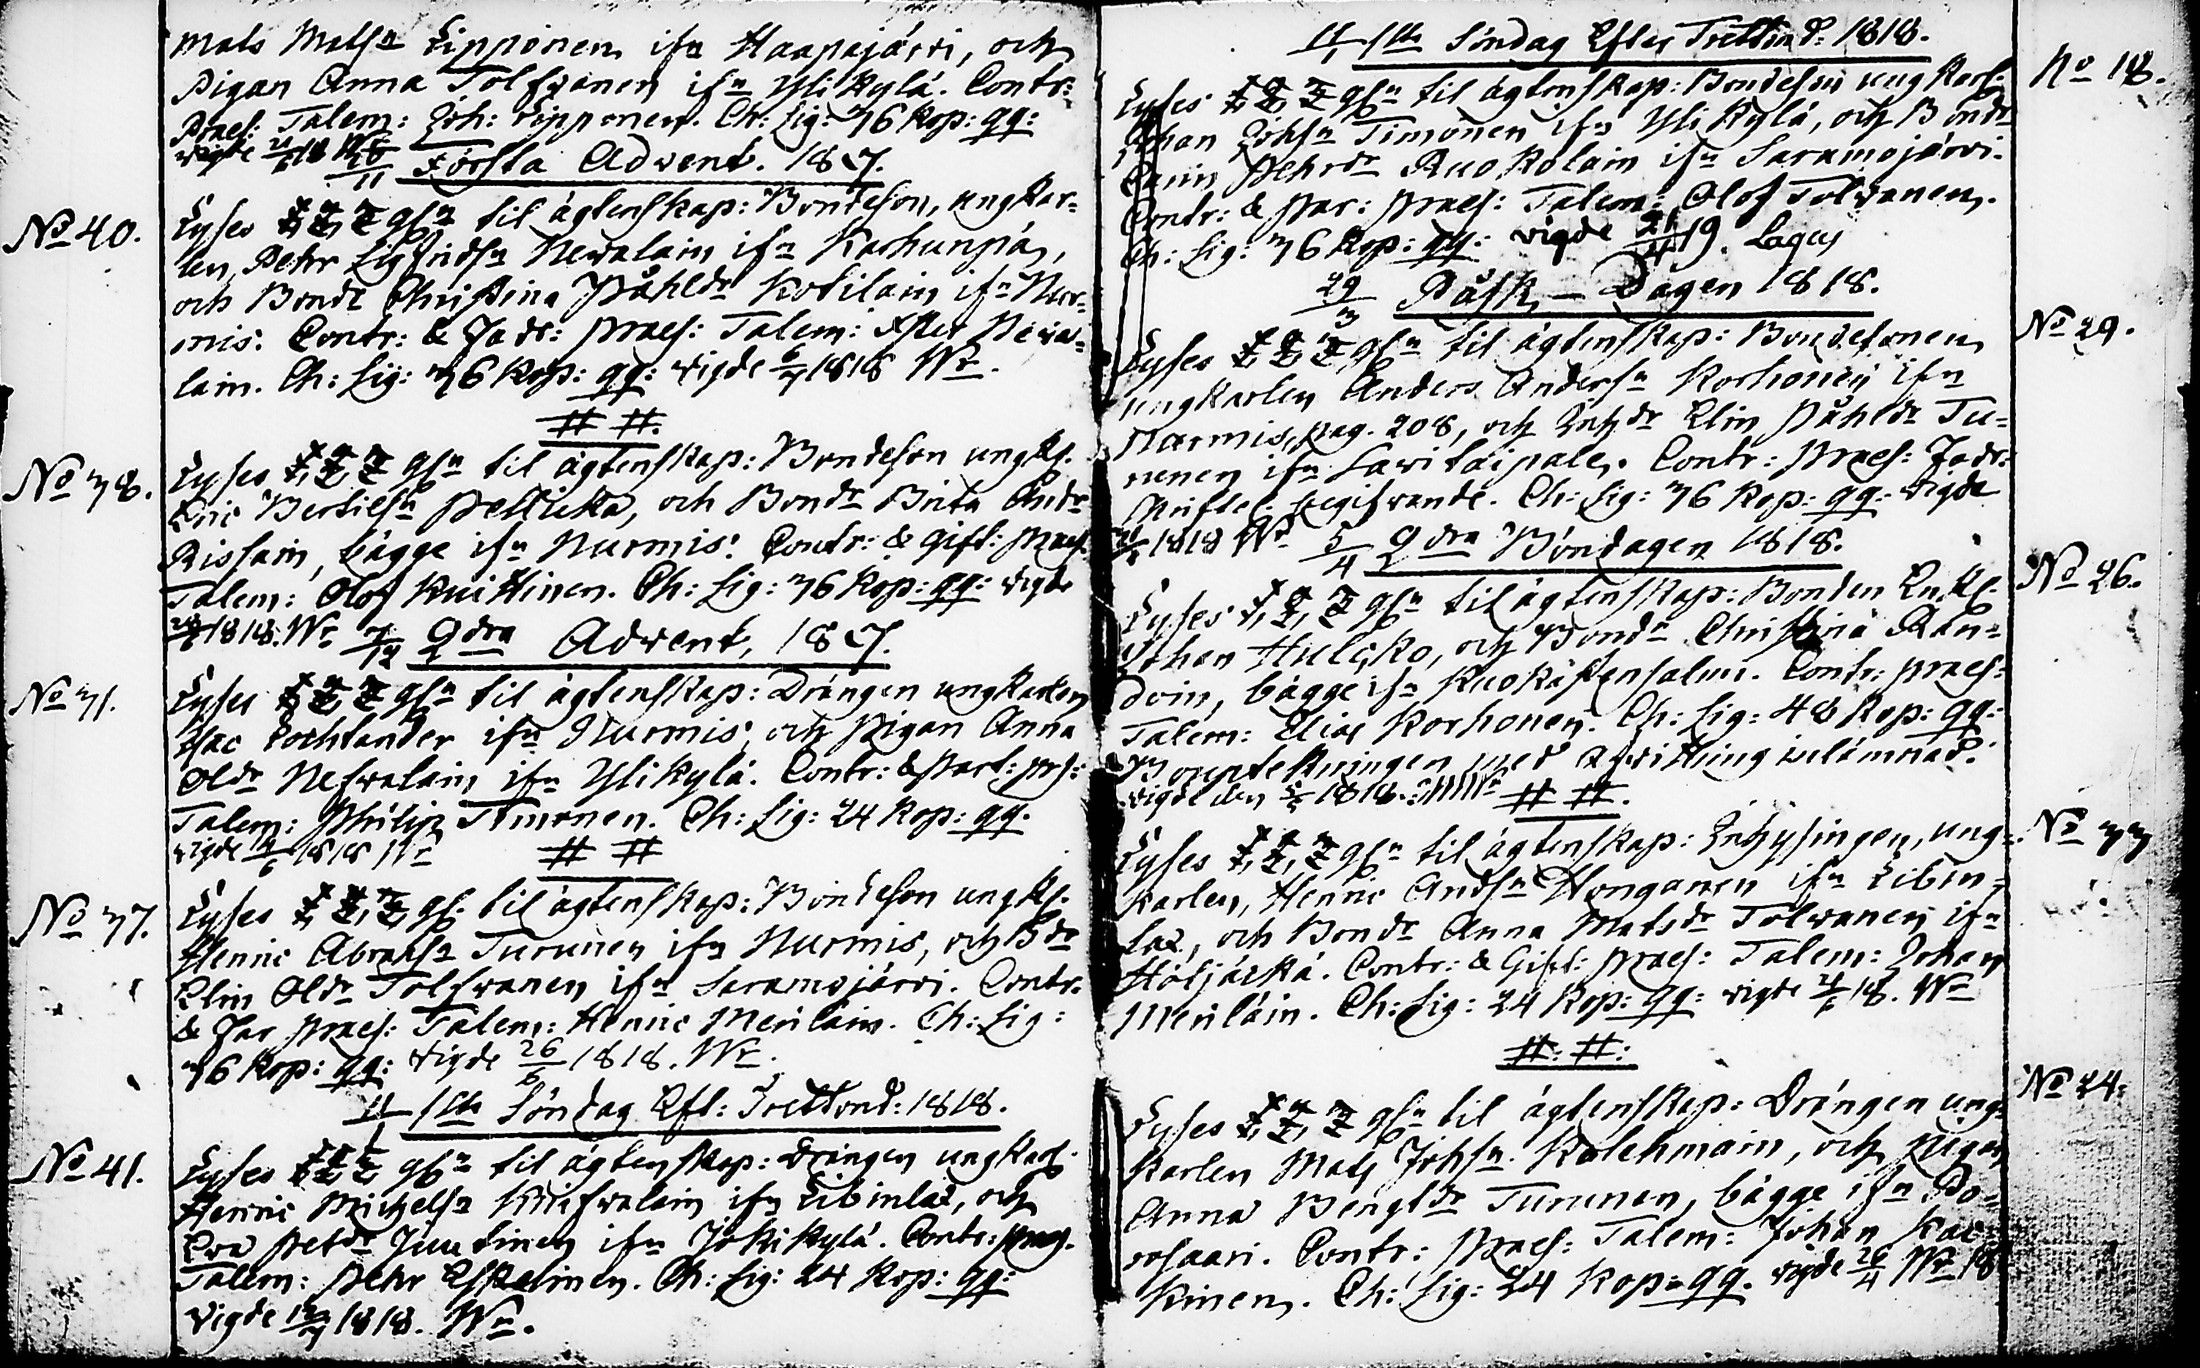 Mats Matss:n Lipponen ifr: Haapajärvi, och
Pigan Anna Tolfvanen ifr: Ylikylä. Contr:
Praes: Talem: Joh: Lipponen. Ch: Sig: 36 kop: qq:
vigde 18
11 Första Advent. 1817.
No 40. Lyses 1, 2, 3 gn til ägtenskap: Bondeson, ungkar-
len, Pehr Sigfridsn Nevalain ifn Karhunpä,
och Bondr Christina Påhldr Kotilain ifn Nur-
mis. Contr: & Fadr: praes: Talem: Neva-
lain. Ch: Sig: 36 kop: qq: vigde 1818 Wr.
# #.
No 38. Lyses 1, 2, 3 gn til ägtenskap: Bondeson ungk.
Eric Bertilsn Petticka, och Bondr Brita Andr
Rissain, bägge ifn Nurmis. Contr: & Gift: praes
Talem: Olof Kuittinen. Ch: Sig: 36 kop: qq: vigde
1818. Wr 7/12 2dra Advent, 1817.
No 31. Lyses 1, 2, 3 gn til ägtenskap: Drängen ungkarlen
Isac Lochlander ifn Nurmis, och Pigan Anna
Oldr Nefvalain ifn Ylikylä. Contr: & Part: prs:
Talem: Philip Timonen. Ch: Sig: 24 kop: qq.
vigde 1818 Wr # #
No 37. Lyses 1, 2, 3 g: til ägtenskap: Bondeson ungk.
Henric Abrahsn Turunen ifn Nurmis, och Bdr
Elin Oldr Tolfvanen ifn Saramojärvi. Contr.
& Par praes: Talem: Henric Meriläin. Ch: Sig:
36 kop: qq: vigde 26/6 1818. Wr.
11/1 1sta Söndag Eft: Trettond: 1818.
No 41. Lyses 1, 2, 3 gn til ägtenskap: Drängen ungkarl.
Henric Michelsn Kinifvalain ifn Libinlax, och
Eva Petdr Juutinen ifn Jokikylä. Contr: praes.
Talem: Pehr Eskelinen. Ch: Sig: 24 kop: qq:
vigde 1818. Wr.
11/1 1sta Söndag Efter Trettond: 1818.
No 18. Lyses 1, 2, 3 gn til ägtenskap: Bondeson ungkarl.
Johan Johsn Timonen ifn Ylikylä, och Bondr
Carin Pehrdr Ruokolain ifn Saramojärvi.
Contr: & Par: praes: Talem: Olof Tolvanen.
Ch: Sig: 36 kop: qq: vigde 19. Lagus
29/3 Påsk - Dagen 1818.
No 29. Lyses 1, 2, 3 gn til ägtenskap: Bondesonen
ungkarlen Anders Andersn Korhonen ifn
Nurmis, pag. 208, och Inhdr Elin Påhldr Tu-
runen ifn Savitaipale. Contr: praes: Fadr:
Skriftel. begifvande. Ch: Sig: 36 kop: qq: vigde
1818 Wr 5/4 2dra Böndagen 1818.
No 26. Lyses 1, 2, 3 gn til ägtenskap: Bonden Enkl.
Johan Hulcko, och Bondr Christina Ron-
doin, bägge ifn Kuokästensalmi. Contr: praes:
Talem: Elias Korhonen. Ch: Sig: 48 kop: qq:
Bouptekningen med qvittning inlämnad.
vigde den 1818. Wr # #.
No 33 Lyses 1, 2, 3 gn til ägtenskap: Inhysingen, ung-
karlen, Henric Andsn Honganen ifn Libin-
lax, och Bondr Anna Matsdr Tolvanen ifn
Höljäkkä. Contr: & Gift: praes: Talem: Johan
Meriläin. Ch: Sig: 24 kop: qq: vigde 18. Wr
#: #:
No 24. Lyses 1, 2, 3 gn til ägtenskap: Drängen ung-
karlen Mats Johsn Kolehmain, och pigan
Anna Bengtdr Turunen, bägge ifn Po-
rosaari. Contr: praes: Talem: Johan Kac-
kinen. Ch: Sig: 24 kop: qq. vigde 26/4 Wr 18